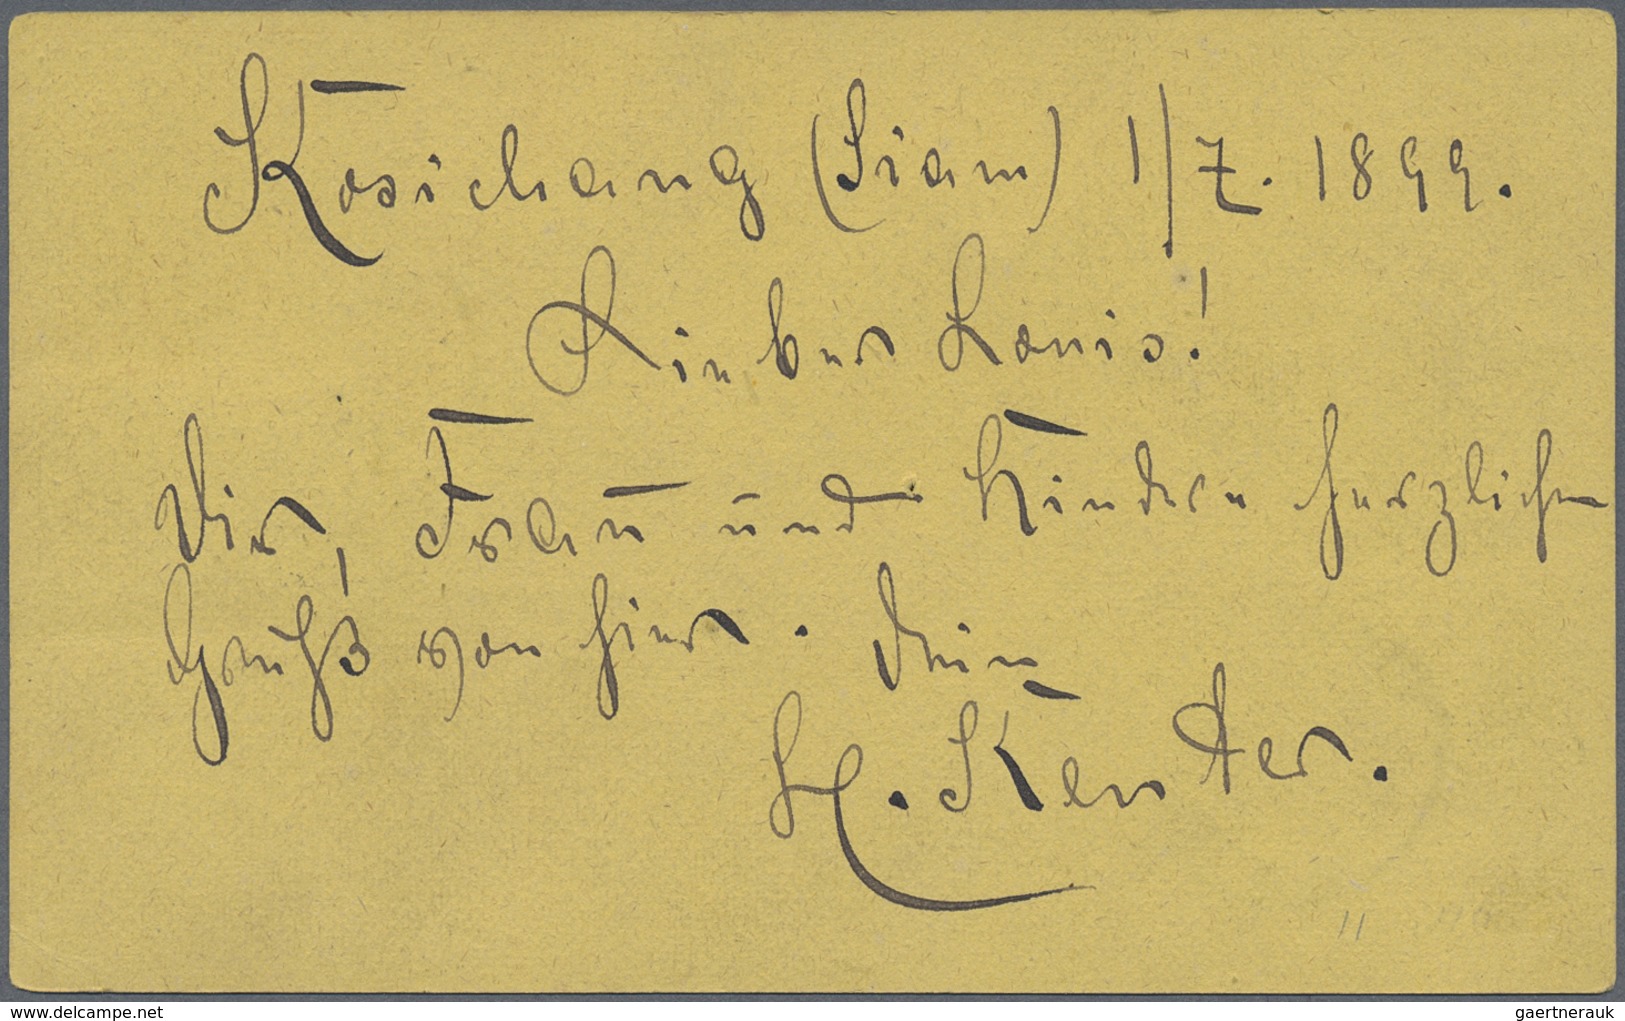 Kosichang (Siam) 1/7. 1899.
Lieber Louis!
Dir, Frau und Kindern herzlichen
Gruß von hier. Dein
H. Kenter.
www.delcampe.net
gaertnerauk